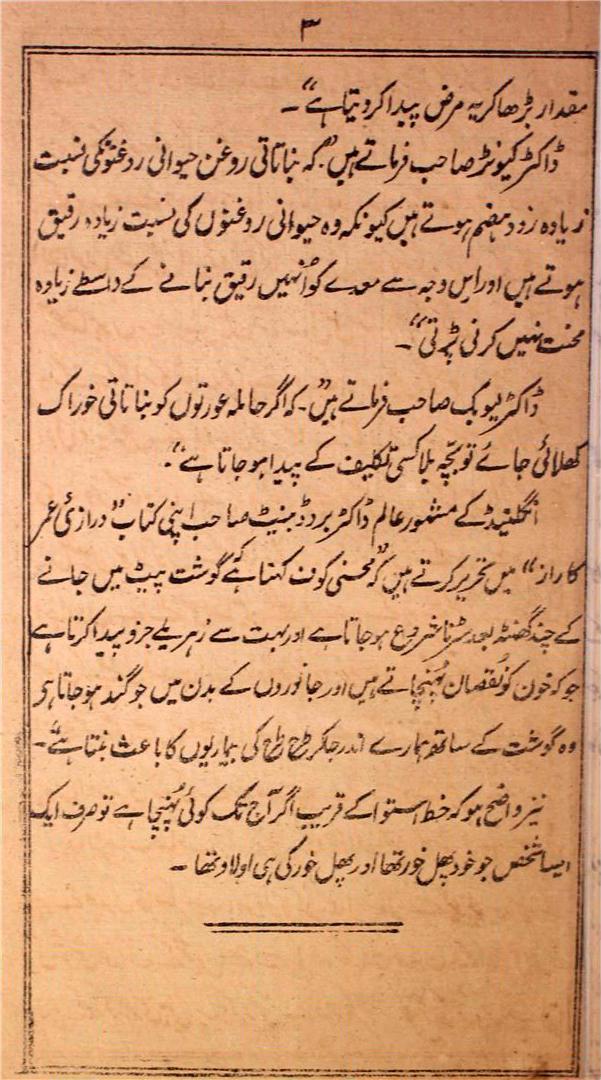 ۳
مقدار بڑھا کر یہ مرض پیدا کر دیتا ہے“۔
ڈاکٹر کیونٹر صاحب فرماتے ہیں ”کہ نباتاتی روغن حیوانی روغنوں کی نسبت
زیادہ زود ہضم ہوتے ہیں کیونکہ وہ حیوانی روغنوں کی نسبت زیادہ رقیق
ہوتے ہیں اور اس وجہ سے معدے کو اُنہیں رقیق بنانے کے واسطے زیادہ
محنت نہیں کرنی پڑتی“۔
ڈاکٹر لیوک صاحب فرماتے ہیں ”۔ کہ اگر حاملہ عورتوں کو نباتاتی خوراک
کھلائی جائے تو بچّہ بلا کسی تکلیف کے پیدا ہو جاتا ہے“۔
انگلینڈ کے مشہور عالم ڈاکٹر بردڈ بنیٹ صاحب اپنی کتاب ”درازیٔ عمر
کا راز“ میں تحریر کرتے ہیں ”کہ محسنی کوف کہتا ہے گوشت پیٹ میں جانے
کے چند گھنٹہ بعد سڑنا شروع ہو جاتا ہے اور بہت سے زہریلے جزو پیدا کرتا ہے
جو کہ خون کو نُقصان پُہنچاتے ہیں اور جانوروں کے بدن میں جو گند ہو جاتا ہی
وہ گوشت کے ساتھ ہمارے اندر جا کر طرح طرح کی بیماریوں کا باعث بنتا ہے“۔
نیز واضح ہو کہ خط استوا کے قریب اگر آج تک کوئی پُہنچا ہے تو صرف ایک
ایسا شخص جو خود پھل خور تھا اور پھل خور کی ہی اولاد تھا ۔